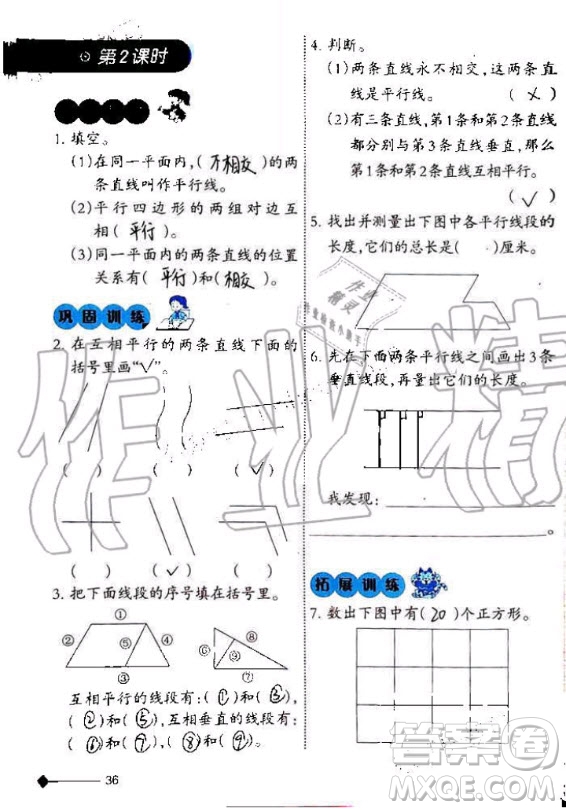 第2课时
1. 填空。
(1)在同一平面内,( 不相交 )的两
条直线叫作平行线。
(2)平行四边形的两组对边互
相( 平行 )。
(3)同一平面内的两条直线的位置
关系有( 平行 )和( 相交 )。
巩固训练
2. 在互相平行的两条直线下面的
括号里画“√”。
( ) ( ) ( √ )
( ) ( √ ) ( )
3. 把下面线段的序号填在括号里。
① ② ⑤ ④ ③
⑥ ⑧ ⑨ ⑦
互相平行的线段有:( ① )和( ③ )、
( ② )和( ⑤ )。互相垂直的线段有:
( ⑥ )和( ⑦ )、( ⑧ )和( ⑨ )。
36
4. 判断。
(1)两条直线永不相交,这两条直
线是平行线。 ( × )
(2)有三条直线,第1条和第2条直线
都分别与第3条直线垂直,那么
第1条和第2条直线互相平行。
( √ )
5. 找出并测量出下图中各平行线段的
长度,它们的总长是( )厘米。
6. 先在下面两条平行线之间画出3条
垂直线段,再量出它们的长度。
我发现:
。
拓展训练
7. 数出下图中有( 20 )个正方形。
作业精灵
作业精
答案圈
MXQE.COM